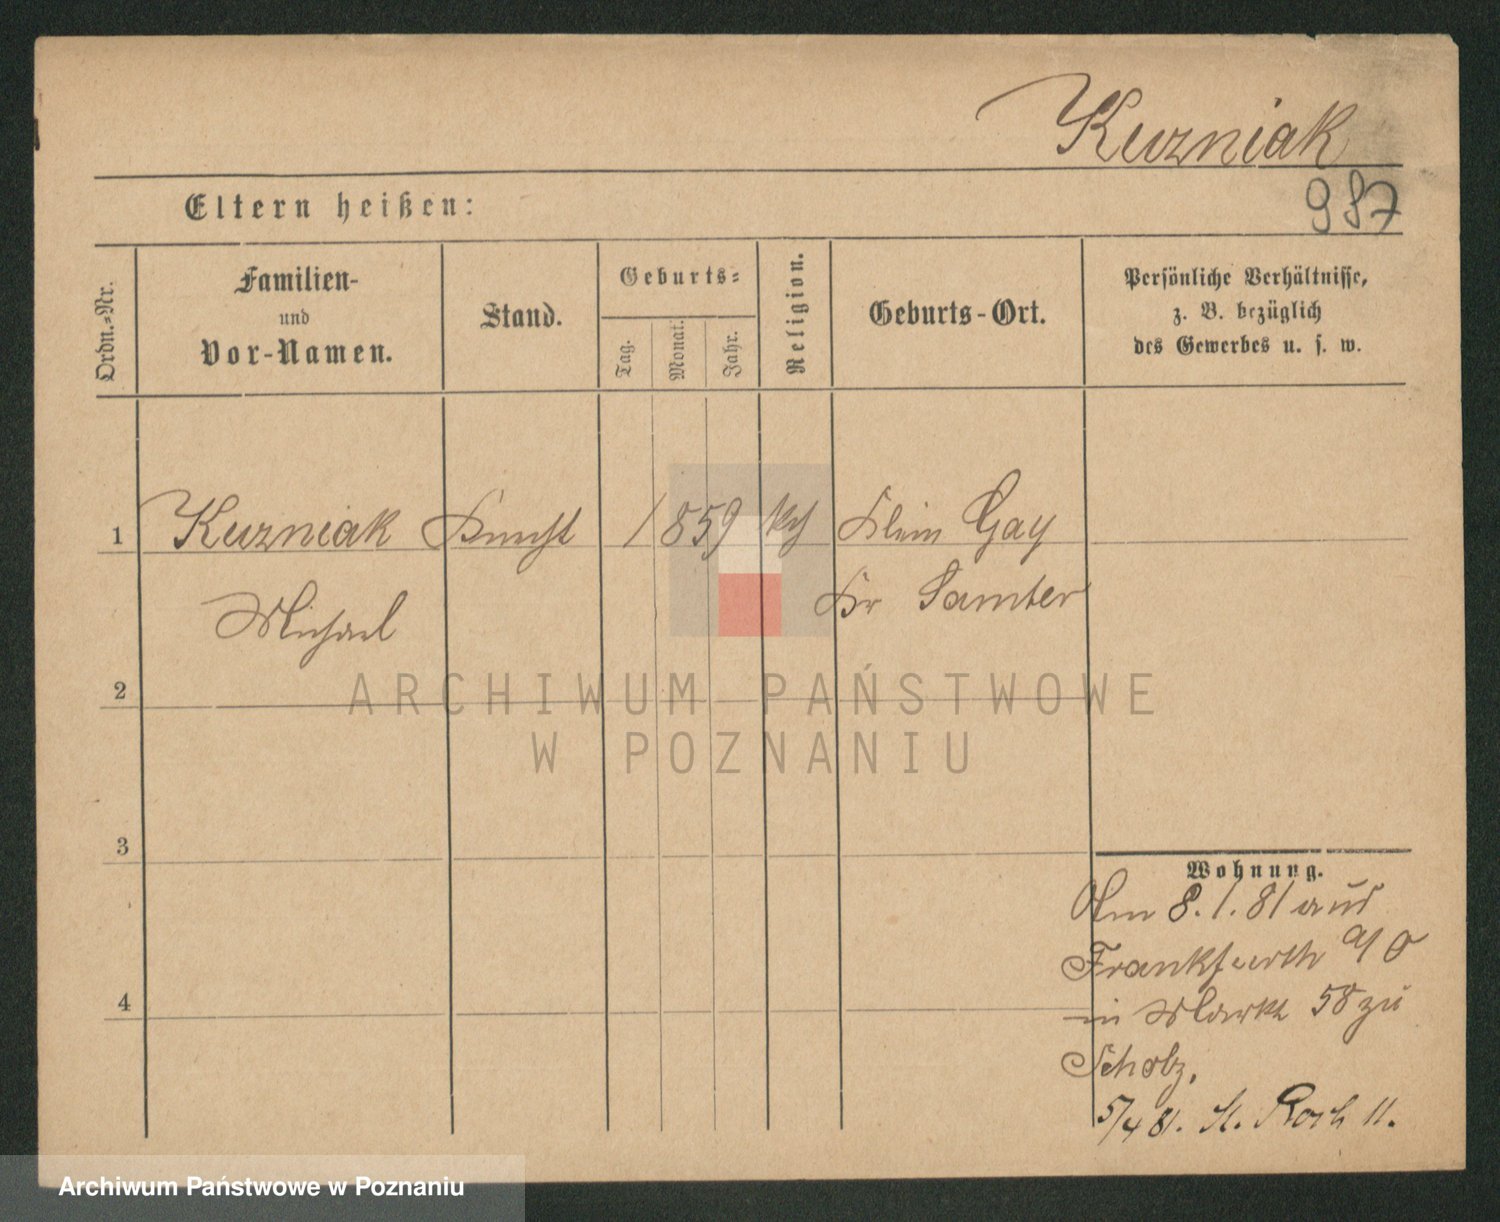 Kuzniak
987
Eltern heißen:
Ordn.-Nr.
Familien-
und
Vor-Namen.
Stand.
Geburts-
Tag.
Monat.
Jahr.
Religion.
Geburts-Ort.
Persönliche Verhältnisse,
z. B. bezüglich
des Gewerbes u. s. w.
1 Kuzniak Knecht 1859 kth Klein Gay
Michael Kr Samter
2
ARCHIWUM PAŃSTWOWE
W POZNANIU
3
Wohnung.
Am 8.1.81 aus
Frankfurth a/O
4
in Markt 58 zu
Scholz,
5/4 81. St. Roch 11.
Archiwum Państwowe w Poznaniu